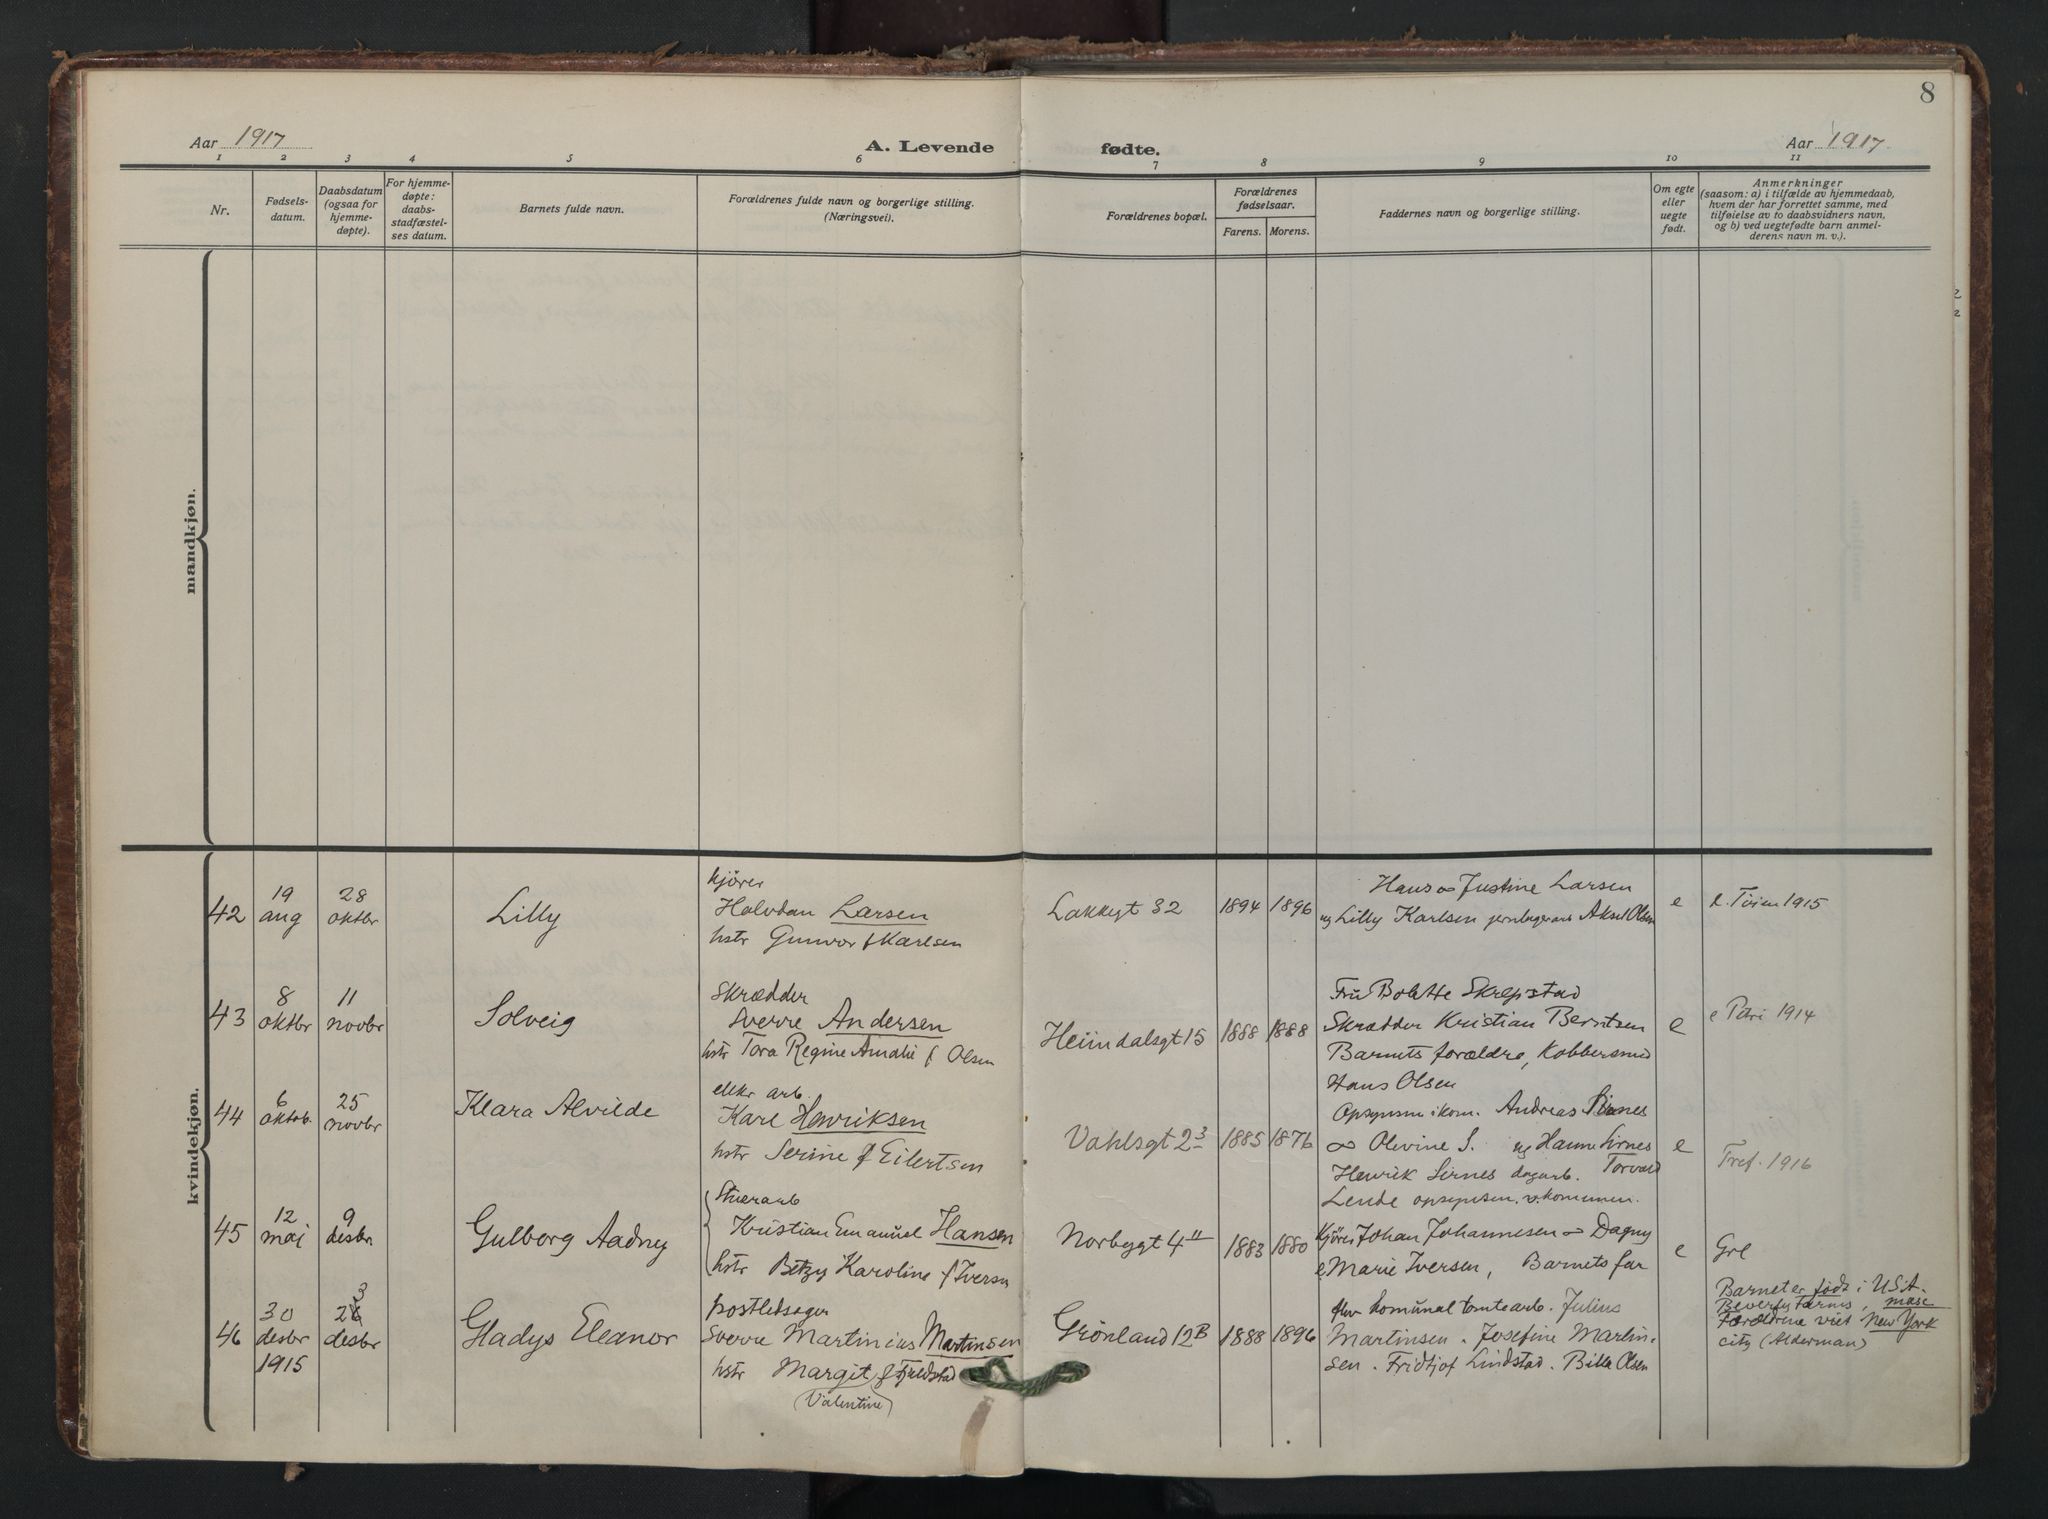 8
Aar 1917
A. Levende fødte.
Aar 1917.
1 2 3 4 5 6 7 8 9 10 11
Nr.
Fødsels-
datum.
Daabsdatum
(ogsaa for
hjemme-
døpte).
For hjemme-
døpte:
daabs-
stadfæstel-
ses datum.
Barnets fulde navn.
Forældrenes fulde navn og borgerlige stilling.
(Næringsvei).
Forældrenes bopæl.
Forældrenes
fødselsaar.
Farens. Morens.
Faddernes navn og borgerlige stilling.
Om egte
eller
uegte
født.
Anmerkninger
(saasom: a) i tilfælde av hjemmedaab,
hvem der har forrettet samme, med
tilføielse av to daabsvidners navn,
og b) ved uegtefødte barn anmel-
derens navn m. v.).
mandkjøn.
kvindekjøn.
42
19
aug
28
oktbr
Lilly
kjører
Halvdan Larsen
hstr Gunvor f Karlsen
Lakkegt 32
1894 1896
Hans ∞ Justine Larsen
og Lilly Karlsen Aksel Olsen
e
e. Tøien 1915
43
8
oktbr
11
novbr
Solveig
Skrædder
Sverre Andersen
hstr Tora Regine Amalie f Olsen
Heimdalsgt 15
1888 1888
Fru Bolette Skrepstad
Skrædder Kristian Berntsen
Barnets forældre, Kobbersmed
Hans Olsen
e
e Petri 1914
44
6
oktob.
25
novbr
Klara Alvilde
elekr arb.
Karl Henriksen
hstr Serine f Eilertsen
Vahlsgt 2 3
1885 1876
Opsynsm i kom. Andreas
∞ Olevine S. og Hanna Sirnes
Henrik Sirnes dagarb. Torvald
Lende opsynsm. v. kommunen.
e
Tref. 1916
45
12
mai
9
desbr.
Gulborg Aadney
Stuerarb
Kristian Emanuel Hansen
hstr Betzy Karoline f Iversen
Norbygt 4 II
1883 1880
Kjører Johan Johannesen ∞ Dagny
e Marie Iversen, Barnets far
e
Grl
46
30
desbr
1915
23
desbr
Gladys Eleanor
postledsager
Sverre Martinius Martinsen
hstr Margit f Fjeldstad
(Valentine)
Grønland 12 B
1888 1896
komunal tomtearb. Julius
Martinsen. Josefine Martin-
sen. Fridtjof Lindstad. Billa Olsen
Barnet er født i U.S.A.
mase
Forældrene viet New York
city (Alderman)